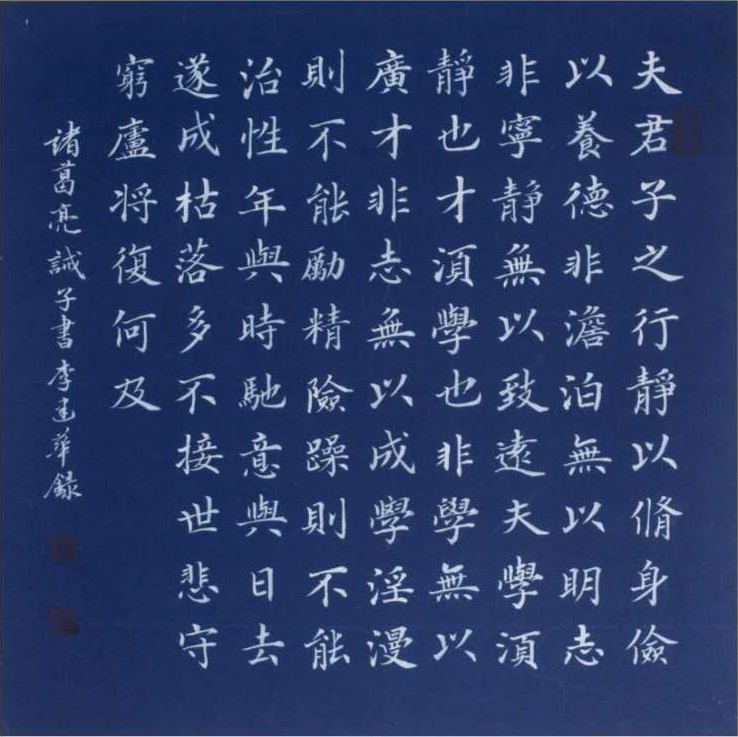 夫君子之行靜以脩身儉
以養德非澹泊無以明志
非寧靜無以致遠夫學湏
靜也才湏學也非學無以
廣才非志無以成學淫漫
則不能勵精險躁則不能
治性年與時馳意與日去
遂成枯落多不接世悲守
窮廬将復何及
諸葛亮誡子書李建華錄